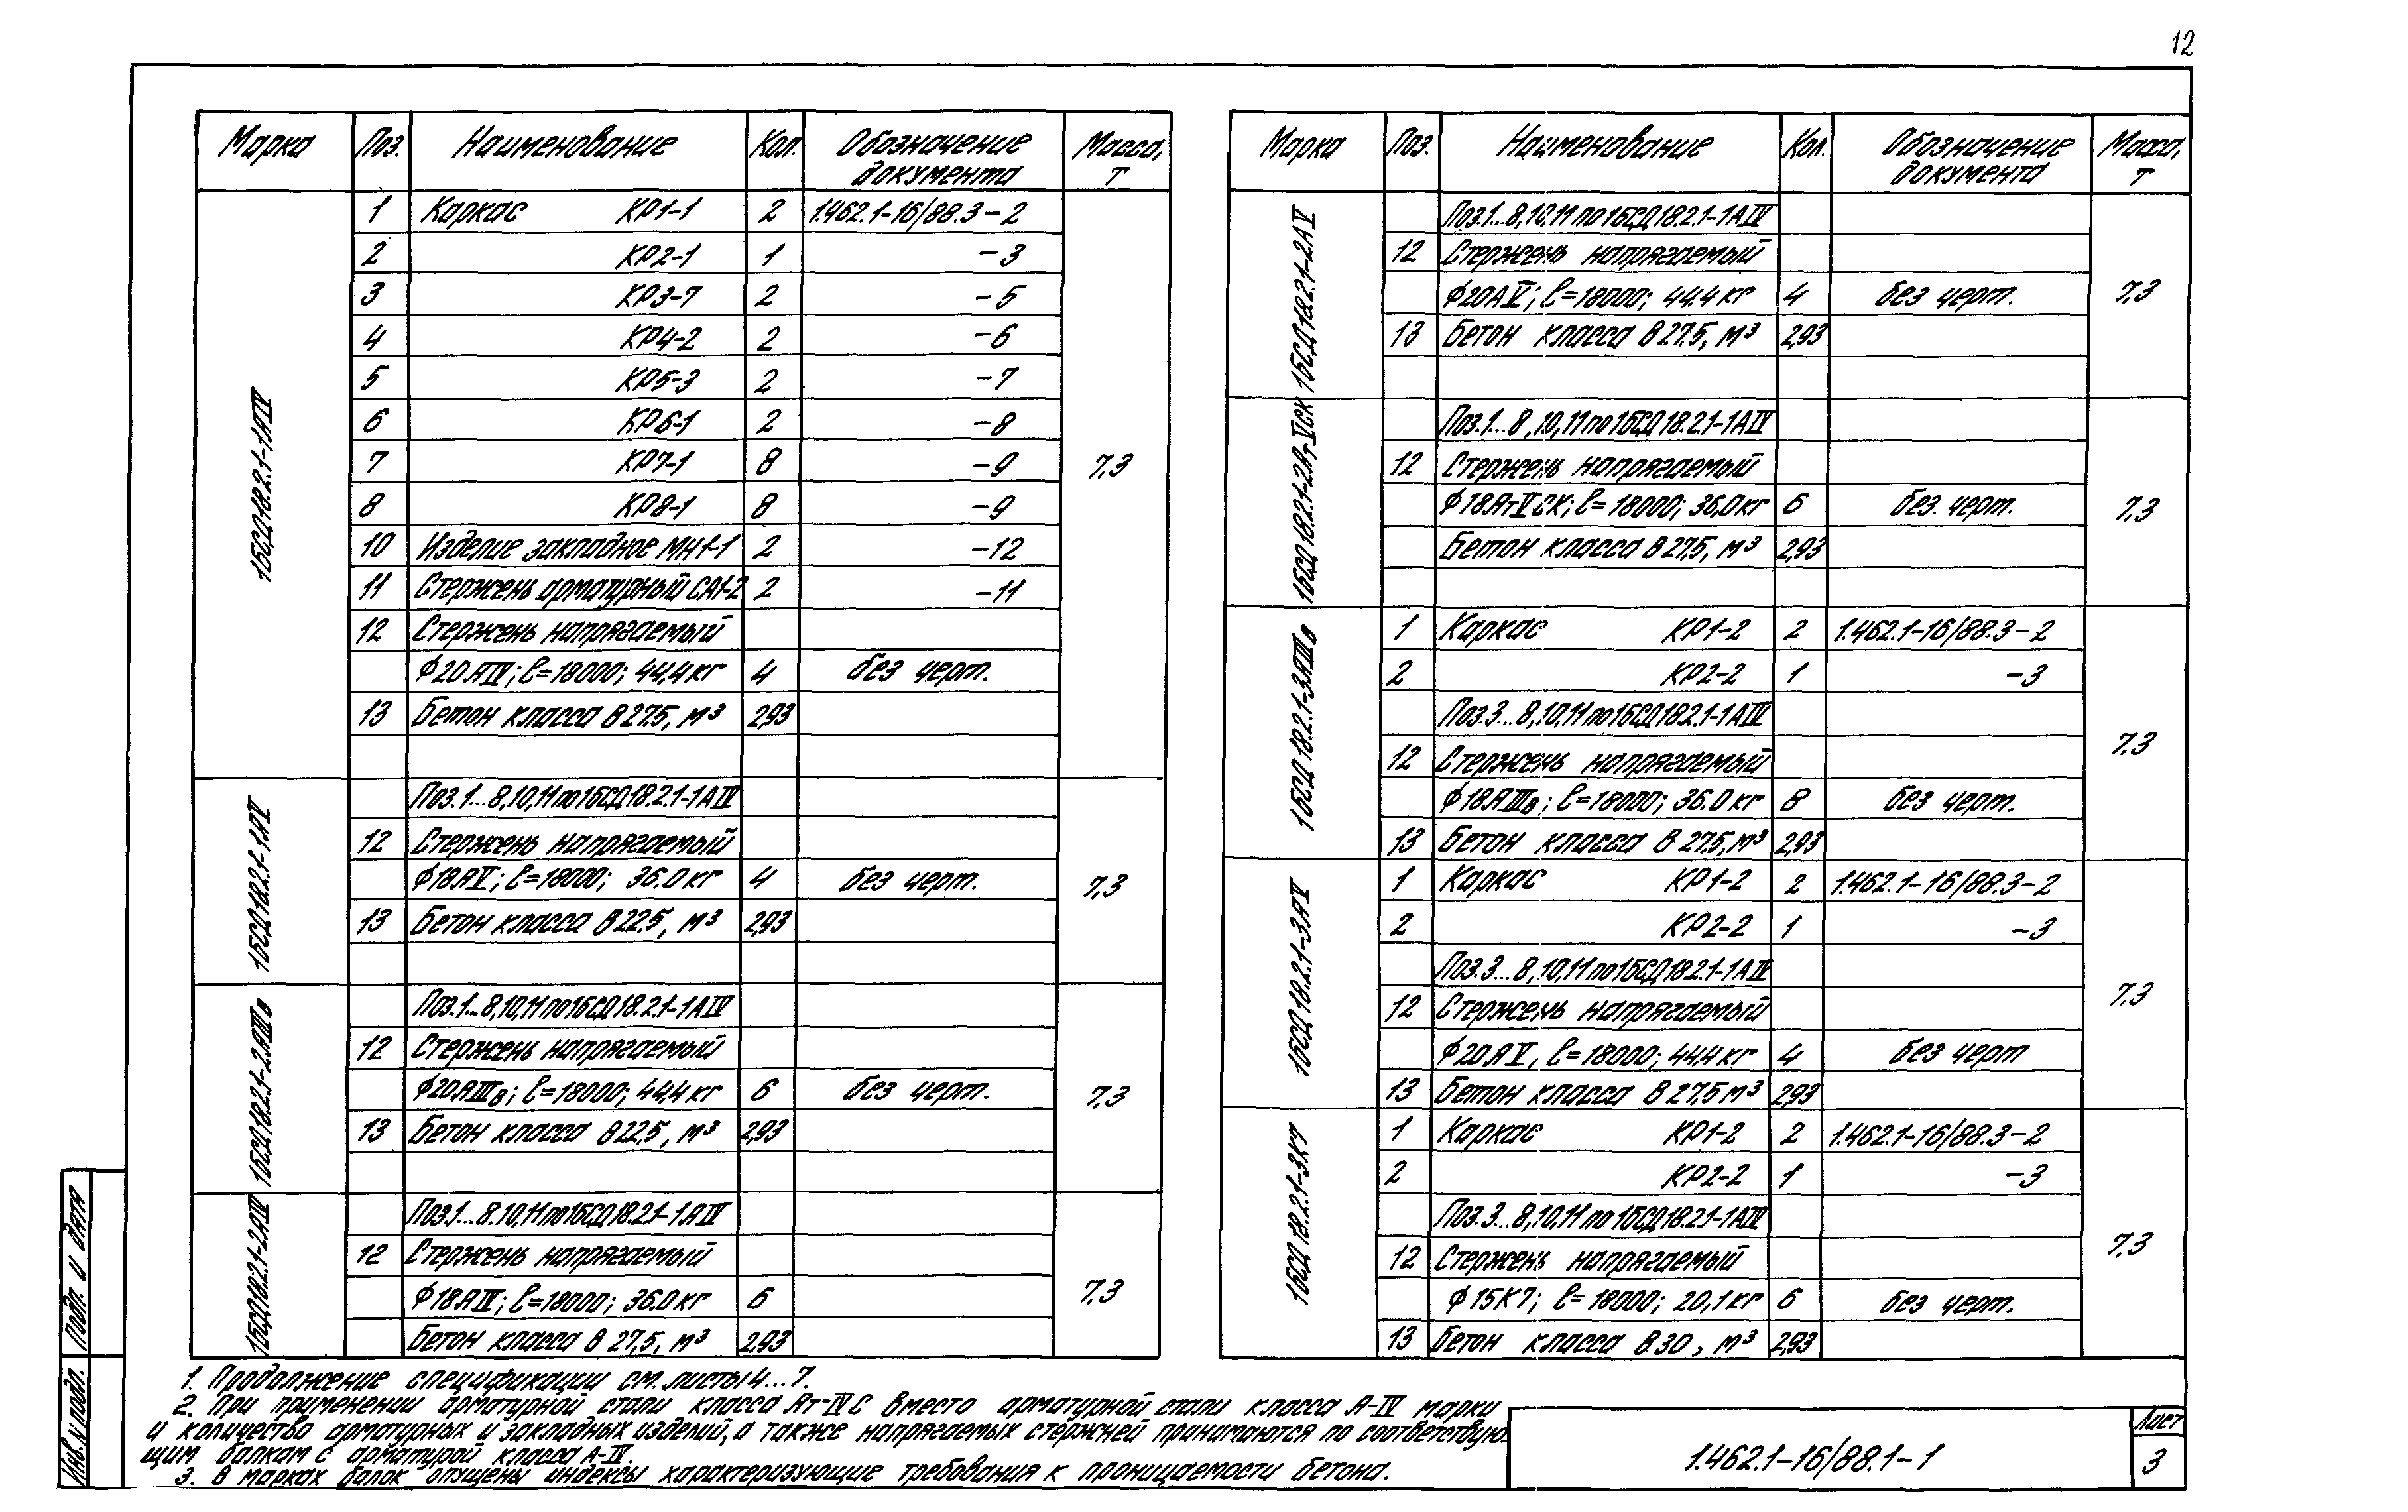 12
Марка Поз. Наименование Кол. Обозначение документа Масса, т
1БСД18.2.1-1АIV
1 Каркас КР1-1 2 1.462.1-16/88.3-2
2 КР2-1 1 -3
3 КР3-7 2 -5
4 КР4-2 2 -6
5 КР5-3 2 -7
6 КР6-1 2 -8
7 КР7-1 8 -9 7,3
8 КР8-1 8 -9
10 Изделие закладное МН1-1 2 -12
11 Стержень арматурный СА1-2 2 -11
12 Стержень напрягаемый
Ф20АIV; ℓ=18000; 44,4кг 4 без черт.
13 Бетон класса В27.5, м³ 2,93
1БСД18.2.1-1АV
Поз.1...8,10,11 по 1БСД18.2.1-1АIV
12 Стержень напрягаемый
Ф18АV; ℓ=18000; 36.0кг 4 без черт. 7,3
13 Бетон класса В22.5, м³ 2,93
1БСД18.2.1-2АIIIв
Поз.1...8,10,11 по 1БСД18.2.1-1АIV
12 Стержень напрягаемый
Ф20АIIIв; ℓ=18000; 44,4кг 6 без черт. 7,3
13 Бетон класса В22,5, м³ 2,93
1БСД18.2.1-2АIV
Поз.1...8.10,11 по 1БСД18.2.1-1АIV
12 Стержень напрягаемый
Ф18АIV; ℓ=18000; 36.0кг 6 7.3
Бетон класса В27,5, м³ 2,93
Марка Поз. Наименование Кол. Обозначение документа Масса, т
1БСД18.2.1-2АV
Поз.1...8,10,11 по 1БСД18.2.1-1АIV
12 Стержень напрягаемый
Ф20АV; ℓ=18000; 44.4кг 4 без черт. 7,3
13 Бетон класса В27.5, м³ 2,93
1БСД18.2.1-2Ат-VСК
Поз.1...8,10,11 по 1БСД18.2.1-1АIV
12 Стержень напрягаемый
Ф18Ат-VСК; ℓ=18000; 36,0кг 6 без. черт. 7,3
Бетон класса В27,5, м³ 2,93
1БСД18.2.1-3АIIIв
1 Каркас КР1-2 2 1.462.1-16/88.3-2
2 КР2-2 1 -3
Поз.3...8,10,11 по 1БСД18.2.1-1АIV
12 Стержень напрягаемый 7,3
Ф18АIIIв; ℓ=18000; 36.0кг 8 без черт.
13 Бетон класса В27.5, м³ 2,93
1БСД18.2.1-3АV
1 Каркас КР1-2 2 1.462.1-16/88.3-2
2 КР2-2 1 -3
Поз.3...8,10,11 по 1БСД18.2.1-1АIV
12 Стержень напрягаемый 7,3
Ф20АV, ℓ=18000; 44.4кг 4 без черт
13 Бетон класса В27,5 м³ 2,93
1БСД18.2.1-3К7
1 Каркас КР1-2 2 1.462.1-16/88.3-2
2 КР2-2 1 -3
Поз.3...8,10,11 по 1БСД18.2.1-1АIV
12 Стержень напрягаемый 7,3
Ф15К7; ℓ=18000; 20,1кг 6 без черт.
13 Бетон класса В30, м³ 2,93
1. Продолжение спецификации см. листы 4...7.
2. При применении арматурной стали класса Ат-IVС вместо арматурной стали класса А-IV марки
и количество арматурных и закладных изделий, а также напрягаемых стержней принимаются по соответствую-
щим балкам с арматурой класса А-IV.
3. В марках балок опущены индексы характеризующие требования к проницаемости бетона.
1.462.1-16/88.1-1
Лист
3
Инв.N подл. Подп. и дата